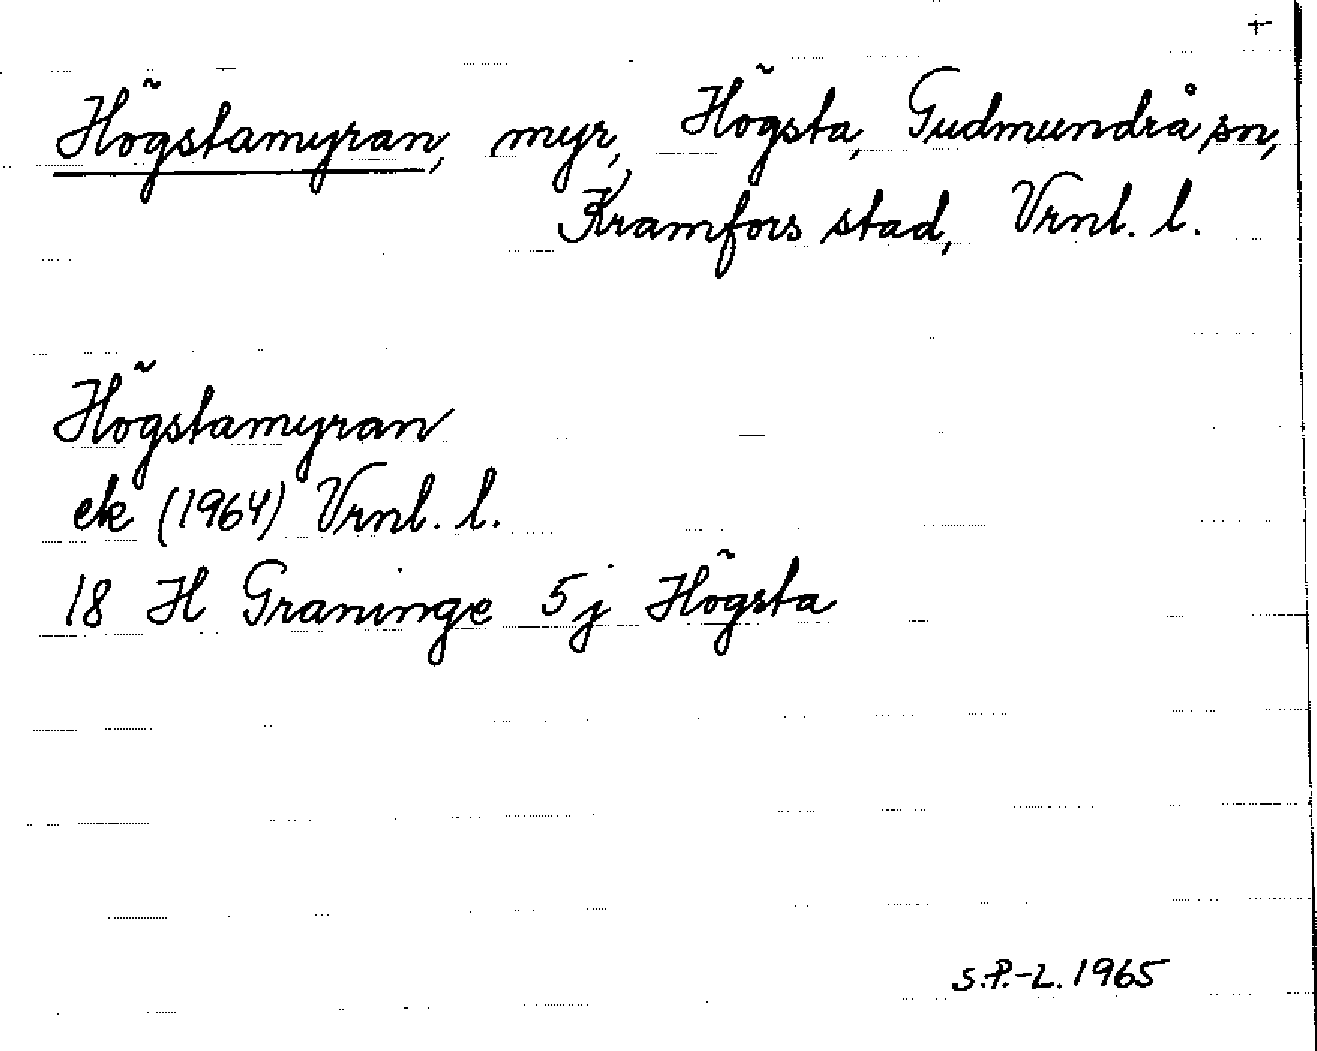 +
Högstamyran, myr, Högsta, Gudmundrå sn,
Kramfors stad, Vrnl. l.
Högstamyran
ek (1964) Vrnl. l.
18 H Graninge 5j Högsta
S.P.-L. 1965